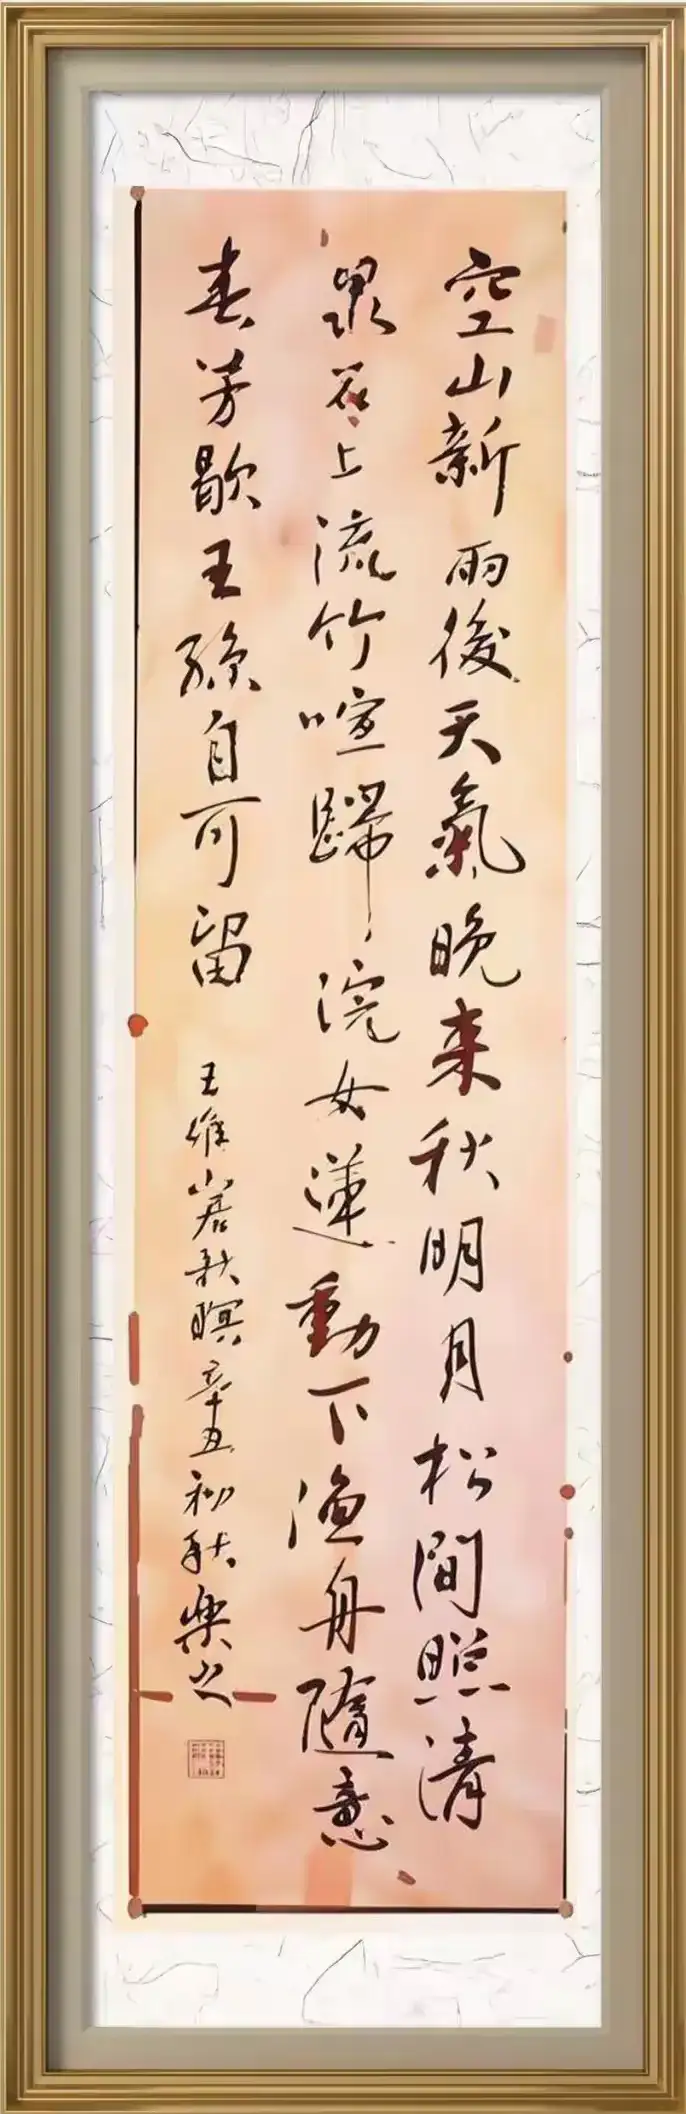 空山新雨後天氣晚来秋明月松間照清
泉石上流竹喧歸浣女蓮動下漁舟隨意
春芳歇王孫自可留
王維山居秋暝辛丑初秋樂之